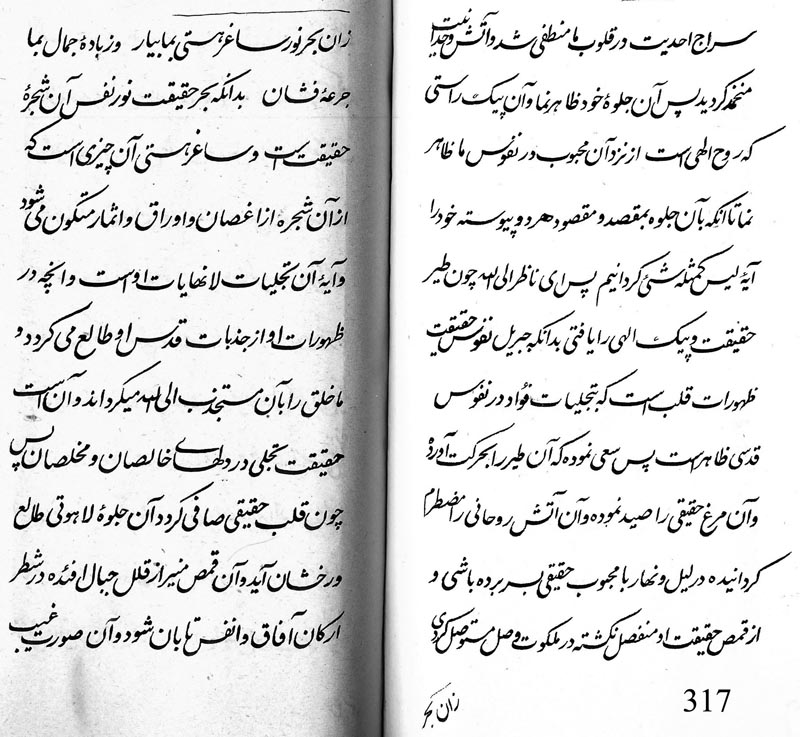 سراج احدیت در قلوب ما منطفی شد و آتش وحدانیت
منخمد کردید پس آن جلوهٔ خود ظاهر نما و آن پیک راستی
که روح الهی است از نزد آن محبوب در نفوس ما ظاهر
نما تا آنکه بآن جلوه بمقصد و مقصود هر دو پیوسته خود را
آیهٔ لیس کمثله شئ کردانیم پس ای ناظر الی الله چون طیر
حقیقت و پیک الهی را یافتی بدانکه جبریل نفوس حقیقت
ظهورات قلب است که بتجلیات فؤاد در نفوس
قدسی ظاهر است پس سعی نموده که آن طیر را بحرکت آورده
و آن مرغ حقیقی را صید نموده و آن آتش روحانی را مضطرم
کردانیده در لیل و نهار با محبوب حقیقی بسر برده باشی و
از قمص حقیقت او منفصل نکشته در ملکوت وصل مستوصل کردی
زان بحر
317
زان بحر نور ساغر هستی بما بیار و ز بادهٔ جمال بما
جرعه فشان بدانکه بحر حقیقت نور نفس آن شجرهٔ
حقیقت است و ساغر هستی آن چیزی است که
از آن شجره از اغصان و اوراق و اثمار متکون می شود
و آیهٔ آن تجلیات لانهایات او است و آنچه در
ظهورات او از جذبات قدس او طالع می کردد و
ما خلق را بآن مستجذب الی الله میکرداند و آن است
حقیقت تجلی در دلهای خالصان و مخلصان پس
چون قلب حقیقی صافی کردد آن جلوهٔ لاهوتی طالع
و رخشان آید و آن قمص منیر از قلل جبال افئده در شطر
ارکان آفاق و انفس تابان شود و آن صورت غیب